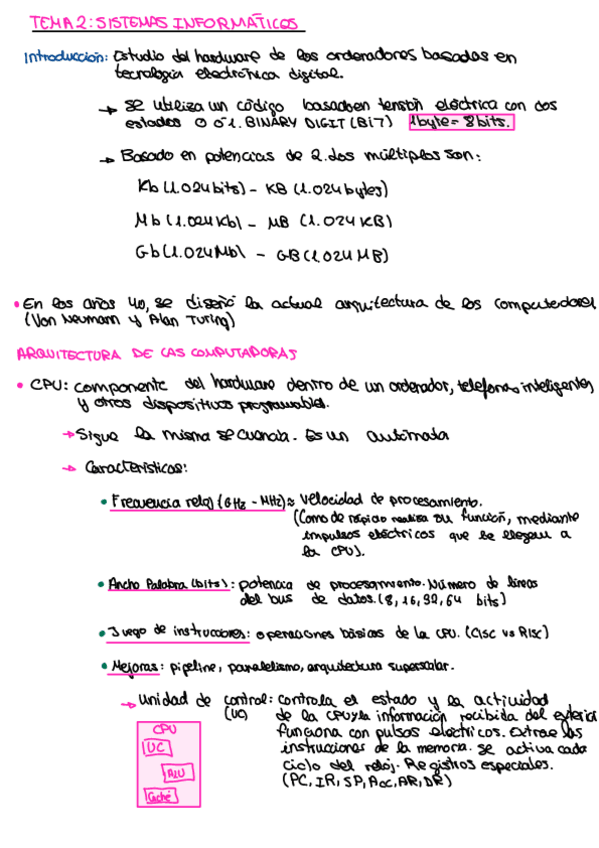 TEMA 2: SISTEMAS INFORMÁTICOS
Introducción: Estudio del hardware de los ordenadores basados en
tecnología electrónica digital.
→ Se utiliza un código basado en tensión eléctrica con dos
estados 0 ó 1. BINARY DIGIT (BIT) 1byte = 8bits.
→ Basado en potencias de 2. Los múltiplos son:
Kb (1.024bits) - KB (1.024bytes)
Mb (1.024Kb) - MB (1.024KB)
Gb (1.024Mb) - GB (1.024MB)
• En los años 40, se diseñó la actual arquitectura de los computadores
(Von Neumann y Alan Turing)
ARQUITECTURA DE LAS COMPUTADORAS
• CPU: componente del hardware dentro de un ordenador, teléfonos inteligentes
y otros dispositivos programables.
→ Sigue la misma secuencia. Es un autómata
→ Características:
• Frecuencia reloj (GHz - MHz) ≈ velocidad de procesamiento.
(Como de rápido realiza su función, mediante
impulsos eléctricos que le llegan a
la CPU).
• Ancho Palabra (bits): potencia de procesamiento. Número de líneas
del bus de datos. (8, 16, 32, 64 bits)
• Juego de instrucciones: operaciones básicas de la CPU. (CISC vs RISC)
• Mejoras: pipeline, paralelismo, arquitectura superscalar.
→ Unidad de control: controla el estado y la actividad
(UC) de la CPU y la información recibida del exterior
funciona con pulsos eléctricos. Extrae las
instrucciones de la memoria. Se activa cada
ciclo del reloj. Registros especiales.
(PC, IR, SP, Acc, AR, DR)
CPU
UC
ALU
Caché